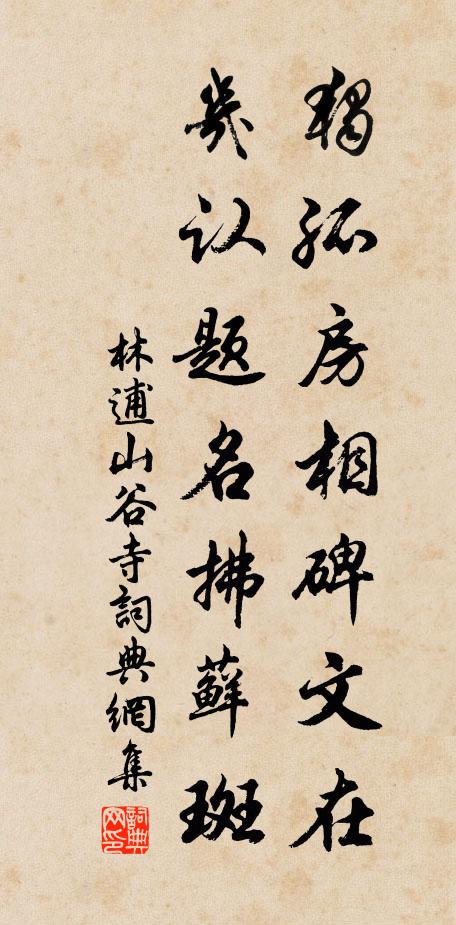 獨孤房相碑文在
幾认题名拂蘚斑
林逋山谷寺詞典網集
詞典网印